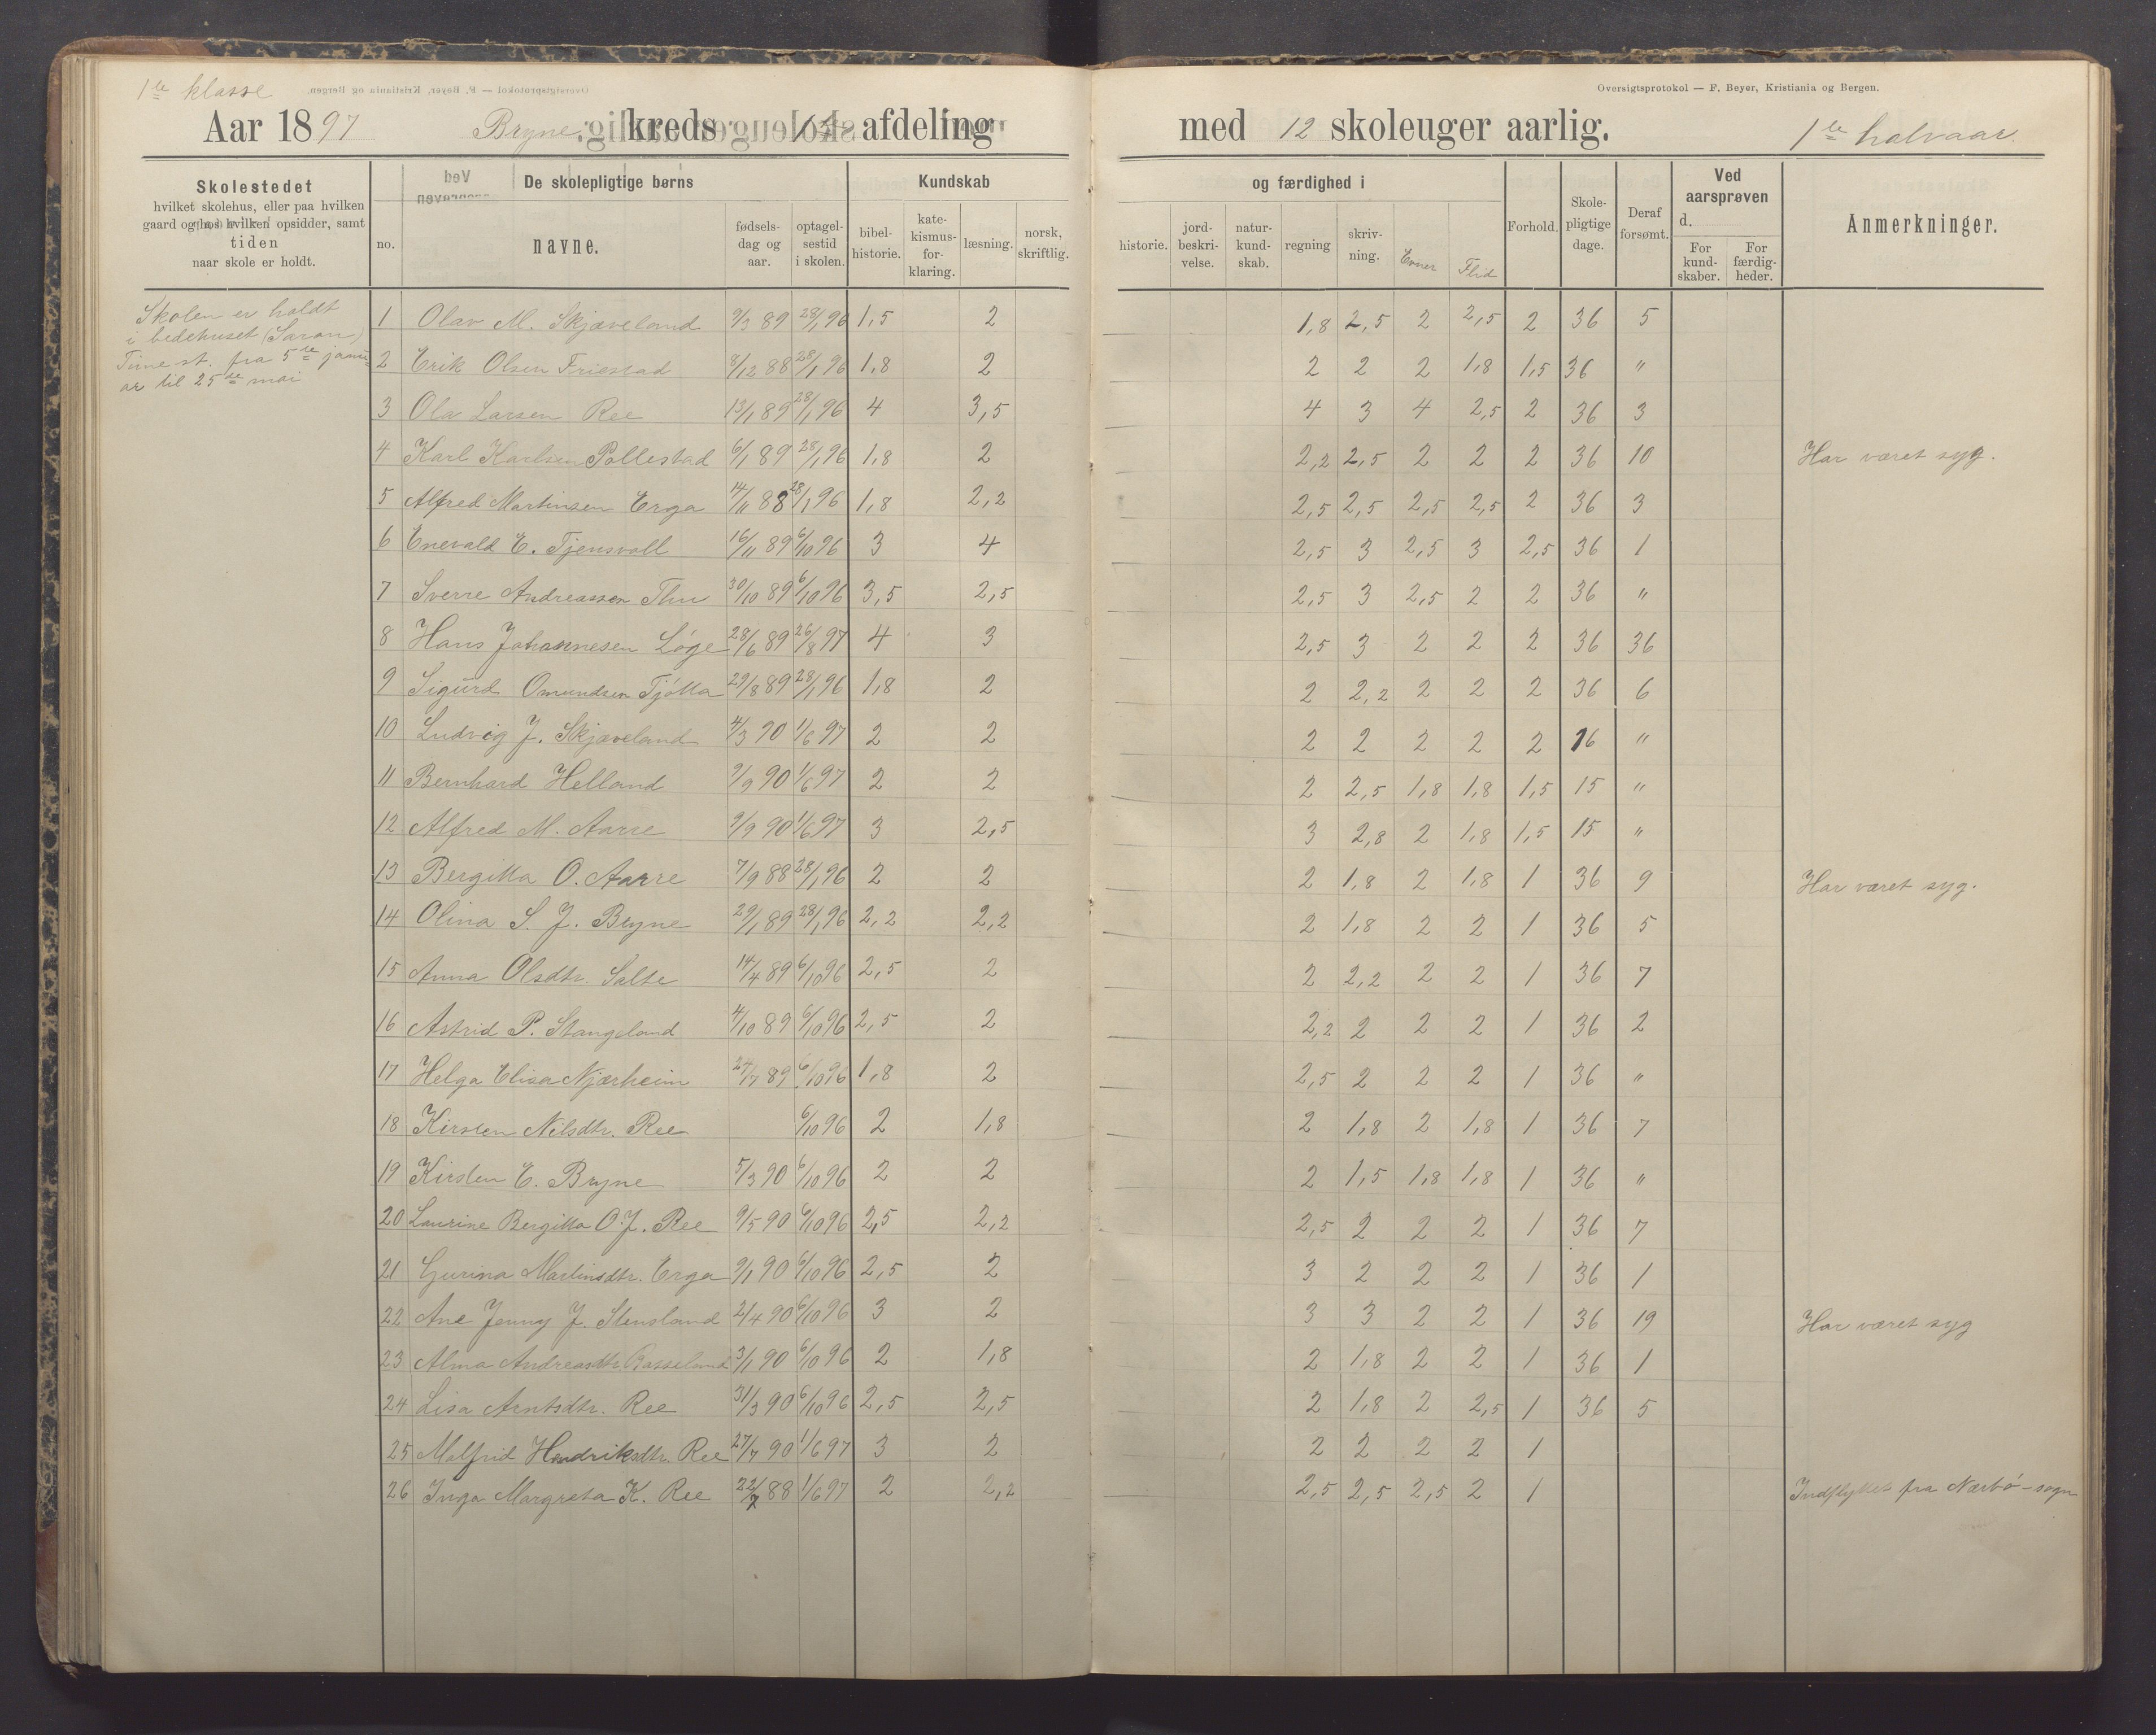 1ste klasse
Oversigtsprotokol — F. Beyer, Kristiania og Bergen.
Aar 1897 Bryne kreds 1ste afdeling med 12 skoleuger aarlig. 1ste halvaar.
Skolestedet
hvilket skolehus, eller paa hvilken
gaard og hos hvilken opsidder, samt
tiden
naar skole er holdt.
De skolepligtige børns
no.
navne.
fødsels-
dag og
aar.
optagel-
sestid
i skolen.
Kundskab og færdighed i
bibel-
historie.
kate-
kismus-
for-
klaring.
læsning.
norsk,
skriftlig.
historie.
jord-
beskri-
velse.
natur-
kund-
skab.
regning
skriv-
ning.
Evner
Flid
Forhold.
Skole-
pligtige
dage.
Deraf
forsømt.
Ved
aarsprøven
d.
For
kund-
skaber.
For
færdig-
heder.
Anmerkninger.
Skolen er holdt
i bedehuset (Saron)
Time st. fra 5te janu-
ar til 25de mai
1 Olav M. Skjæveland 9/3 89 28/1 96 1,5 2 1,8 2,5 2 2,5 2 36 5
2 Erik Olsen Friestad 8/12 88 28/1 96 1,8 2 2 2 2 1,8 1,5 36 "
3 Ola Larsen Ree 13/1 89 28/1 96 4 3,5 4 3 4 2,5 2 36 3
4 Karl Karlsen Pollestad 6/1 89 28/1 96 1,8 2 2,2 2,5 2 2 2 36 10 Har været syg.
5 Alfred Martinsen Erga 14/11 88 28/1 96 1,8 2,2 2,5 2,5 2,5 2,5 2 36 3
6 Enevald E. Tjensvoll 16/11 89 6/10 96 3 4 2,5 3 2,5 3 2,5 36 1
7 Sverre Andreassen Thu 30/10 89 6/10 96 3,5 2,5 2,5 3 2,5 2 2 36 "
8 Hans Johannesen Løge 28/6 89 26/8 97 4 3 2,5 3 2 2 2 36 36
9 Sigurd Omundsen Tjøtta 29/8 89 28/1 96 1,8 2 2 2,2 2 2 2 36 6
10 Ludvig J. Skjæveland 4/3 90 1/6 97 2 2 2 2 2 2 2 16 "
11 Bernhard Helland 9/9 90 1/6 97 2 2 2 2,5 1,8 1,8 1,5 15 "
12 Alfred M. Aarre 9/9 90 1/6 97 3 2,5 3 2,8 2 1,8 1,5 15 "
13 Bergitta O. Aarre 7/9 88 28/1 96 2 2 2 1,8 2 1,8 1 36 9 Har været syg.
14 Olina S. J. Bryne 29/1 89 28/1 96 2,2 2,2 2 1,8 2 2 1 36 5
15 Anna Olsdtr. Salte 14/4 89 6/10 96 2,5 2 2 2,2 2 2 1 36 7
16 Astrid P. Stangeland 4/10 89 6/10 96 2,5 2 2,2 2 2 2 1 36 2
17 Helga Elisa Njærheim 27/7 89 6/10 96 1,8 2 2,5 2 2 2 1 36 "
18 Kirsten Nilsdtr. Ree 6/10 96 2 1,8 2 1,8 2 1,8 1 36 7
19 Kirsten E. Bryne 5/3 90 6/10 96 2 2 2 1,5 1,8 1,8 1 36 "
20 Laurine Bergitta O. J. Ree 9/5 90 6/10 96 2,5 2,2 2,5 2 2 2 1 36 7
21 Gurina Martinsdtr. Erga 9/1 90 6/10 96 2,5 2 3 2 2 2 1 36 1
22 Ane Jenny J. Stensland 2/4 90 6/10 96 3 2 3 3 2 2 1 36 19 Har været syg
23 Alma Andreasdtr. 3/1 90 6/10 96 2 1,8 2 1,8 2 2 1 36 1
24 Lisa Arntsdtr. Ree 31/3 90 6/10 96 2,5 2,5 2 1,8 2 2,5 1 36 5
25 Malfrid Hendriksdtr. Ree 27/7 90 1/6 97 3 2 2 2 2 2 1
26 Inga Margreta K. Ree 22/7 88 1/6 97 2 2,2 2,5 2,5 2,5 2 1 Indflyttet fra Nærbø-sogn